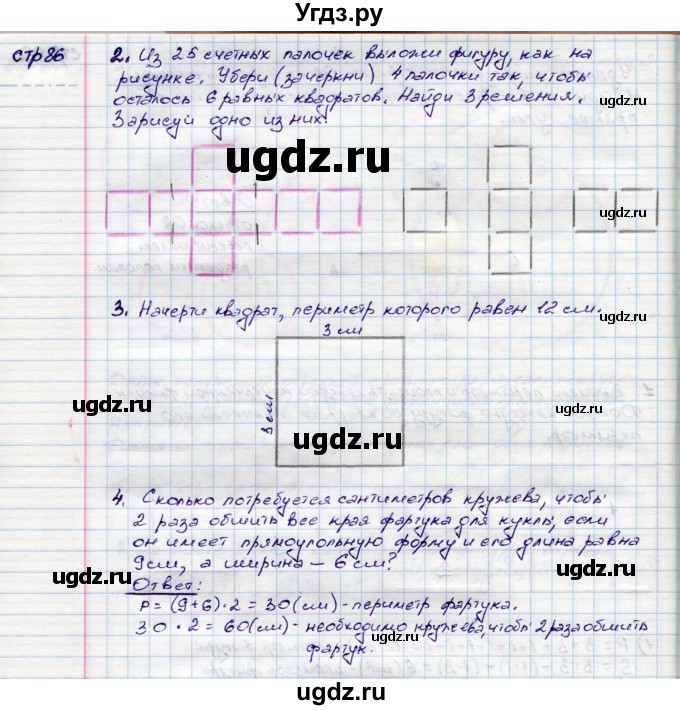 Угдз.ру
стр86
2. Из 25 счетных палочек выложи фигуру, как на
рисунке. Убери (зачеркни) 4 палочки так, чтобы
осталось 6 равных квадратов. Найди 3 решения.
Зарисуй одно из них.
ugdz.ru
ugdz.ru
ugdz.ru
3. Начерти квадрат, периметр которого равен 12 см.
3 см
ugdz.ru
3 см
ugdz.ru
ugdz.ru
4. Сколько потребуется сантиметров кружева, чтобы
2 раза обшить все края фартука для куклы, если
он имеет прямоугольную форму и его длина равна
9см, а ширина – 6 см?
ugdz.ru
ugdz.ru
Ответ:
P = (9+6)·2 = 30(см) - периметр фартука.
30 · 2 = 60(см) - необходимо кружева, чтобы 2 раза обшить
фартук.
ugdz.ru
ugdz.ru